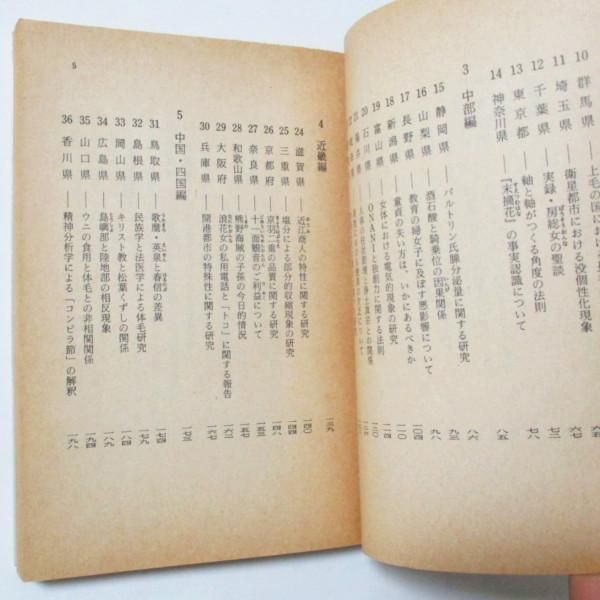 10 群馬県――上毛の国における
11 埼玉県――衛星都市における没個性化現象 六七
12 千葉県――実録・房総女の聖談
13 東京都――軸と軸がつくる角度の法則 七八
14 神奈川県――『末摘花』の事実認識について 八五
3 中部編 八六
15 静岡県――バルトリン氏腺分泌量に関する研究
16 山梨県――酒石酸と騎乗位の因果関係 九三
17 長野県――教育の婦女子に及ぼす悪影響について 一〇四
18 新潟県――童貞の失い方は、いかにあるべきか 一一〇
19 富山県――女体における電気的現象の研究
20 石川県――ONANIと独創力に関する法則
5
4 近畿編 一三九
24 滋賀県――近江商人の特性に関する研究 一四〇
25 三重県――塩分による部分的収縮現象の研究 一四四
26 京都府――京羽二重の品質に関する研究 一四八
27 奈良県――十一面観音のご利益について 一五三
28 和歌山県――熊野海賊の子孫の今日的情況 一五七
29 大阪府――浪花女の私用電話と「トコ」に関する報告 一六二
30 兵庫県――開港都市の特殊性に関する研究 一六七
5 中国・四国編 一七三
31 鳥取県――歌麿・英泉と春信の差異 一七四
32 島根県――民族学と法医学による体毛研究 一七九
33 岡山県――キリスト教と松葉くずしの関係 一八四
34 広島県――島嶼部と陸地部の相反現象
35 山口県――ウニの食用と体毛との非相関関係 一九四
36 香川県――精神分析学による「コンピラ節」の解釈 一九八